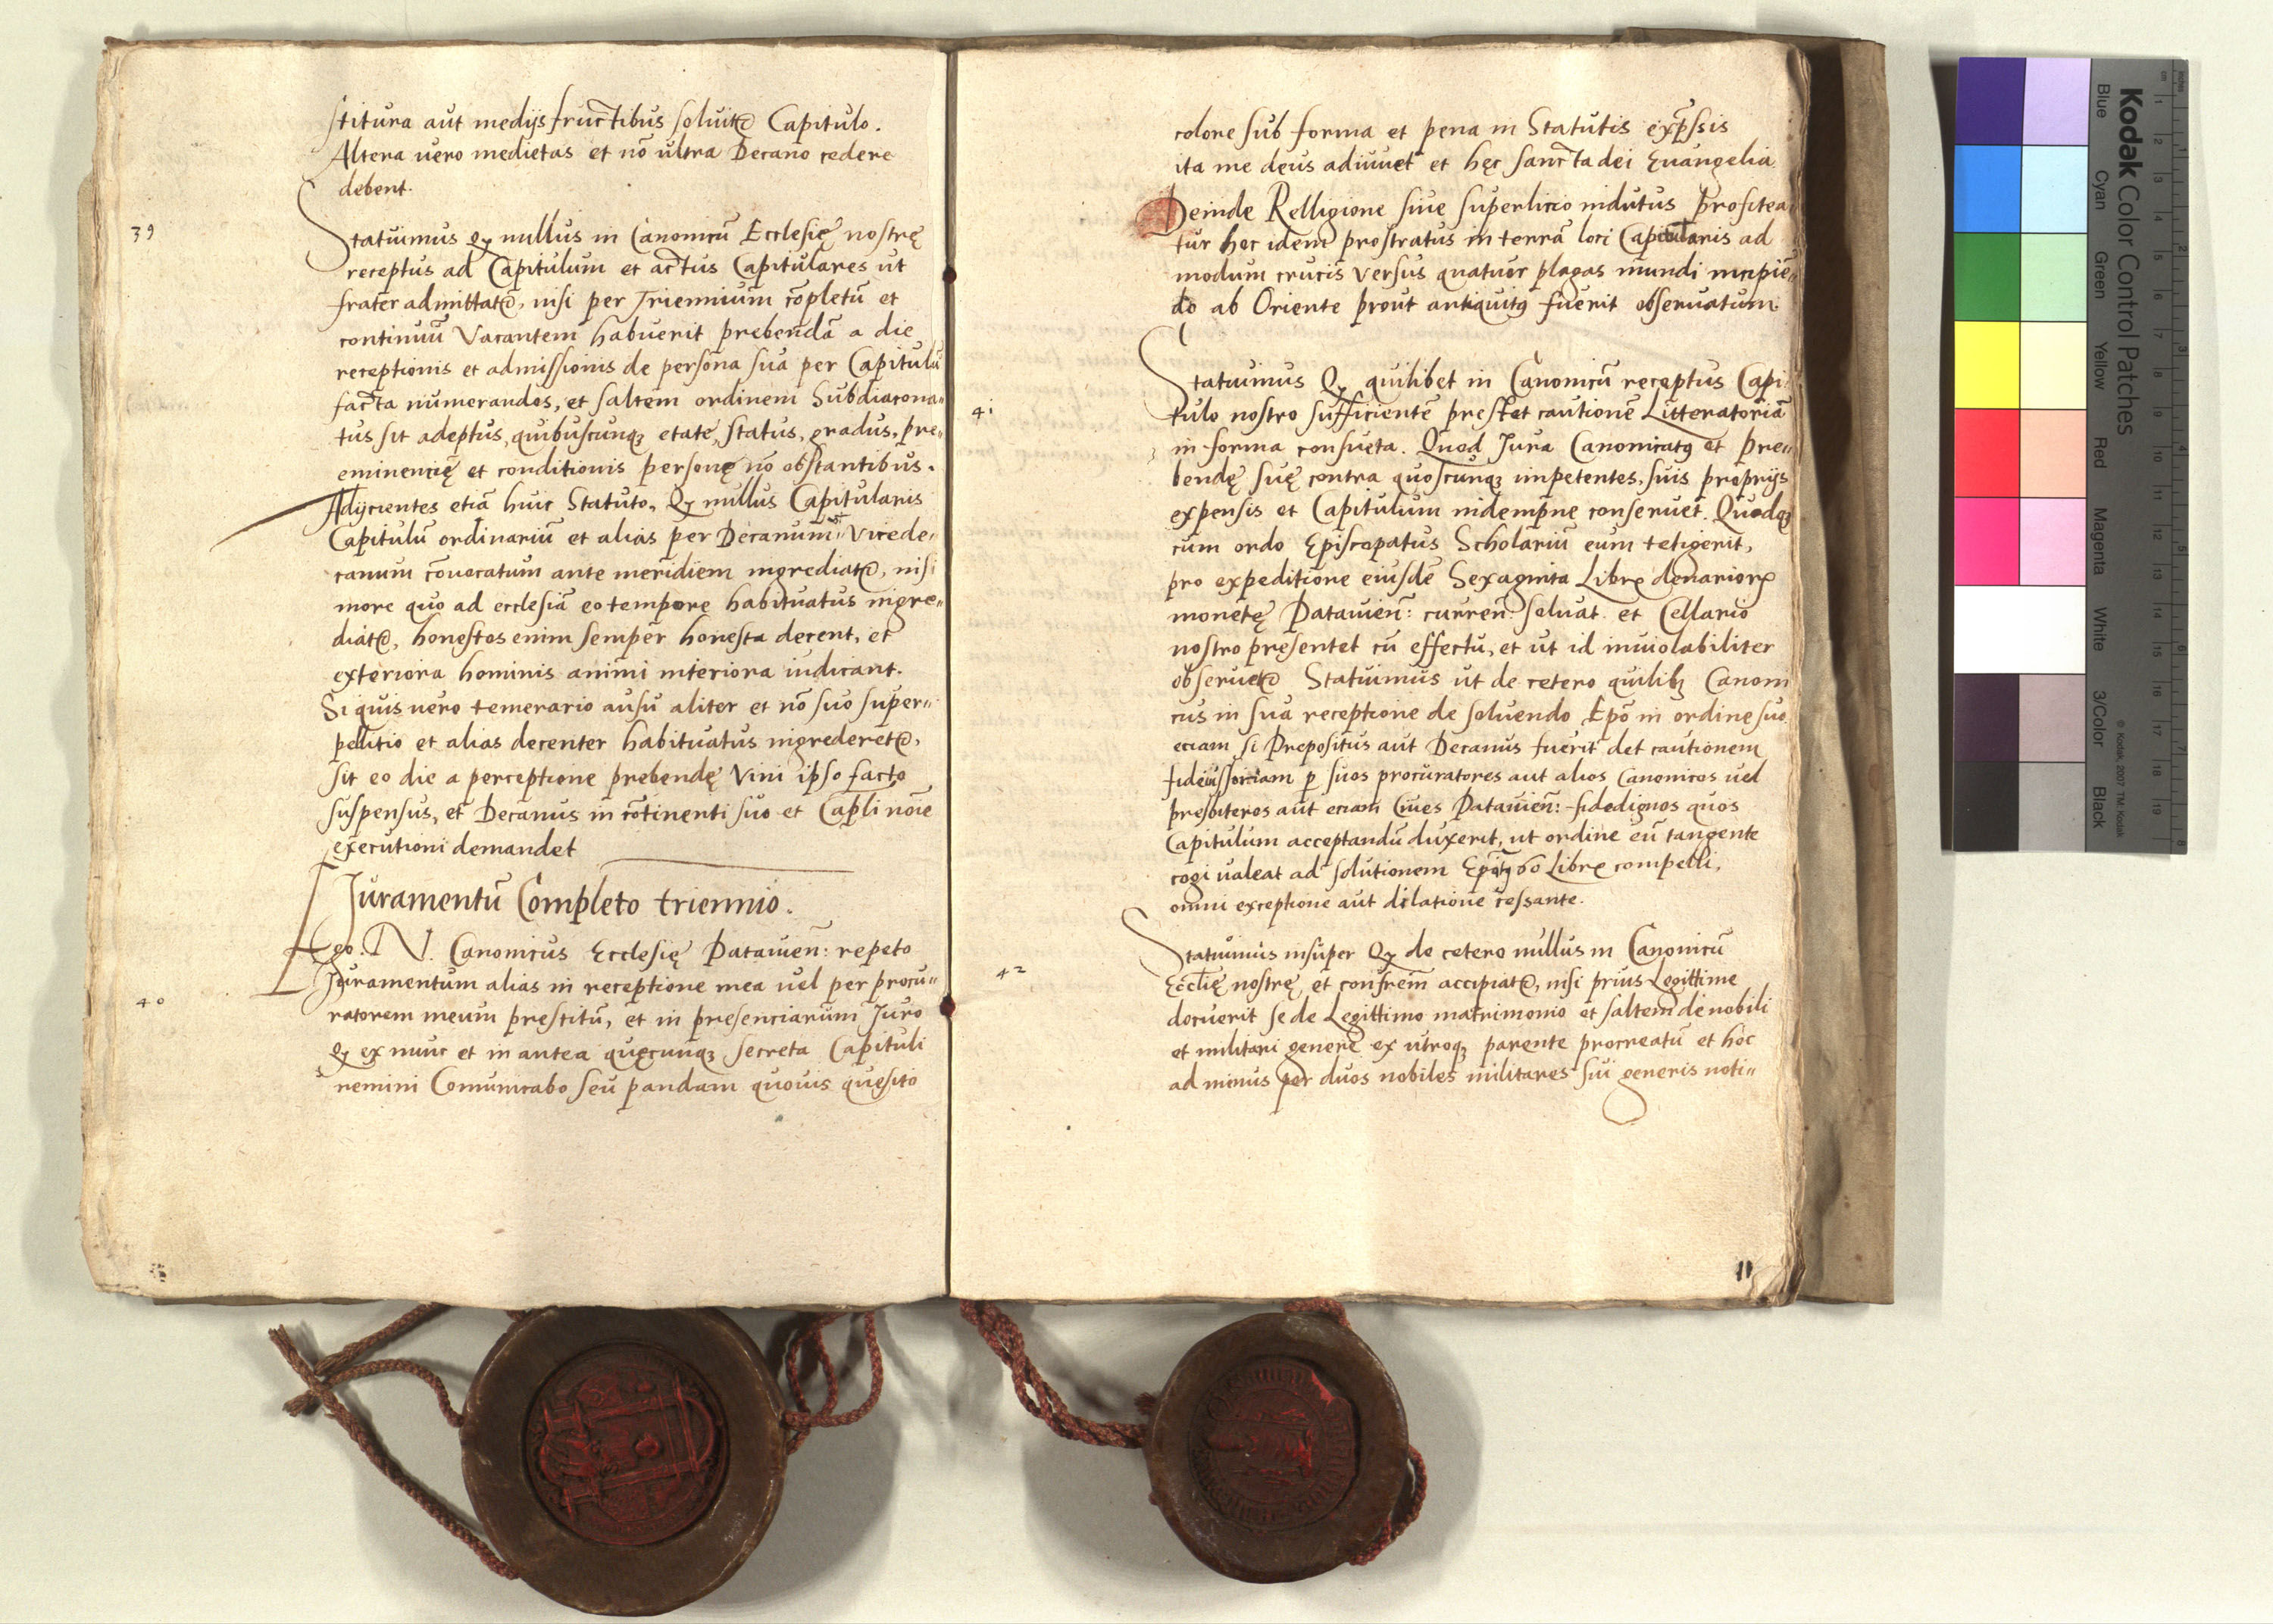 stitura aut medijs fructibus soluit᷒ Capitulo.
Altera uero medietas et nō ultra Decano cedere
debent.
39
Statuimus qꝫ nullus in Canonicū Ecclesię nostrę
receptus ad Capitulum et actus Capitulares ut
frater admittat᷒, nisi per Triennium cōpletū et
continuū Vacantem habuerit prebendā a die
receptionis et admissionis de persona sua per Capitulū
facta numerandos, et saltem ordinem Subdiacona„
tus sit adeptus, quibuscunqꝫ etate, status, gradus, pre„
eminencię et conditionis personę nō obstantibus.
Adijcientes etiā huic Statuto, Qꝫ nullus Capitularis
Capitulū ordinariū et alias per Decanum uel Vicede„
canum cōuocatum ante meridiem ingrediat᷒, nisi
more quo ad ecclesiā eo tempore habituatus ingre„
diat᷒, honestos enim semper honesta decent, et
exteriora hominis animi interiora iudicant.
Si quis uero temerario ausu aliter et nō suo super„
pellitio et alias decenter habituatus ingrederet᷒,
sit eo die a perceptione prebendę Vini ipso facto
suspensus, et Decanus in cōtinenti suo et Capli noīe
executioni demandet
Juramentū Completo triennio.
40
Ego. N. Canonicus Ecclesię Patauien̄: repeto
Juramentum alias in receptione mea uel per procu„
ratorem meum prestitū, et in presenciarum Juro
qꝫ ex nunc et in antea quęcunqꝫ secreta Capituli
nemini Comunicabo seu pandam quouis quesito
colore sub forma et pena in Statutis exp̄ssis
ita me deus adiuuet et hęc sancta dei Euangelia
Deinde Relligione siue superlicio indutus profitea
tur hec idem prostratus in terrā loci Capitularis ad
modum crucis versus quatuor plagas mundi incipiē„
do ab Oriente prout antiquitꝰ fuerit obseruatum.
41
Statuimus Qꝫ quilibet in Canonicū receptus Capi„
tulo nostro sufficientē prestet cautionē Litteratoriā
in forma consueta. Quod Jura Canonicatꝰ et Pre„
bendę suę contra quoscunqꝫ impetentes, suis proprijs
expensis et Capitulum indempne conseruet. Quodqꝫ
cum ordo Episcopatus Scholariū eum tetigerit,
pro expeditione eiusdē Sexaginta Librꝝ denariorꝝ
monetę Patauien̄: curren̄ soluat et Cellario
nostro presentet cū effectu, et ut id inuiolabiliter
obseruet᷒ Statuimus ut de cetero quilibꝫ Canoni
cus in sua receptione de soluendo Ep̄o in ordine suo
eciam si Prepositus aut Decanus fuerit det cautionem
fideiussoriam ꝑ suos procuratores aut alios Canonicos uel
presbiteros aut eciam Ciues Patauien̄: fidedignos quos
Capitulum acceptandū duxerit, ut ordine eū tangente
cogi ualeat ad solutionem Ep̄atꝰ 60 Librꝝ compelli,
omni exceptione aut dilatione cessante.
42
Statuimus insuper Qꝫ de cetero nullus in Canonicū
Eccl̄ię nostrę et confrēm accipiat᷒, nisi prius Legittime
docuerit se de Legittimo matrimonio et saltem de nobili
et militari genere ex utroqꝫ parente procreatū et hoc
ad minus per duos nobiles militares sui generis noti„
11
Kodak Color Control Patches
Blue Cyan Green Yellow Red Magenta White 3/Color Black
© Kodak, 2007 TM: Kodak